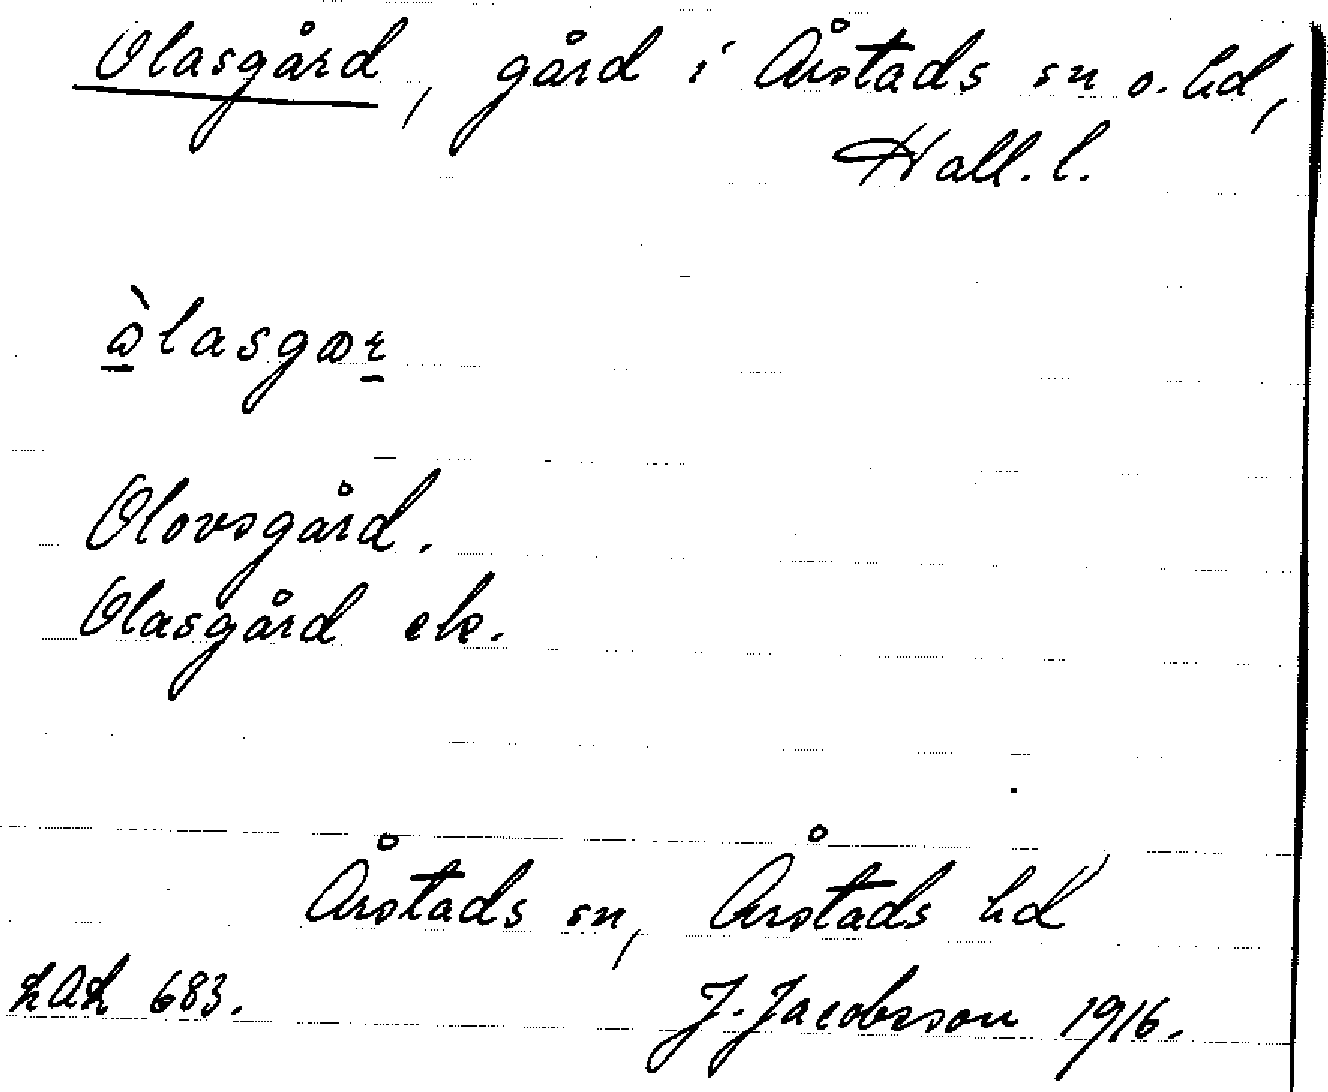 Olasgård, gård i Årstads sn o. hd,
Hall. l.
Olovsgård.
Olasgård ek.
Årstads sn, Årstads hd
LAL 683.
J. Jacobsson 1916.